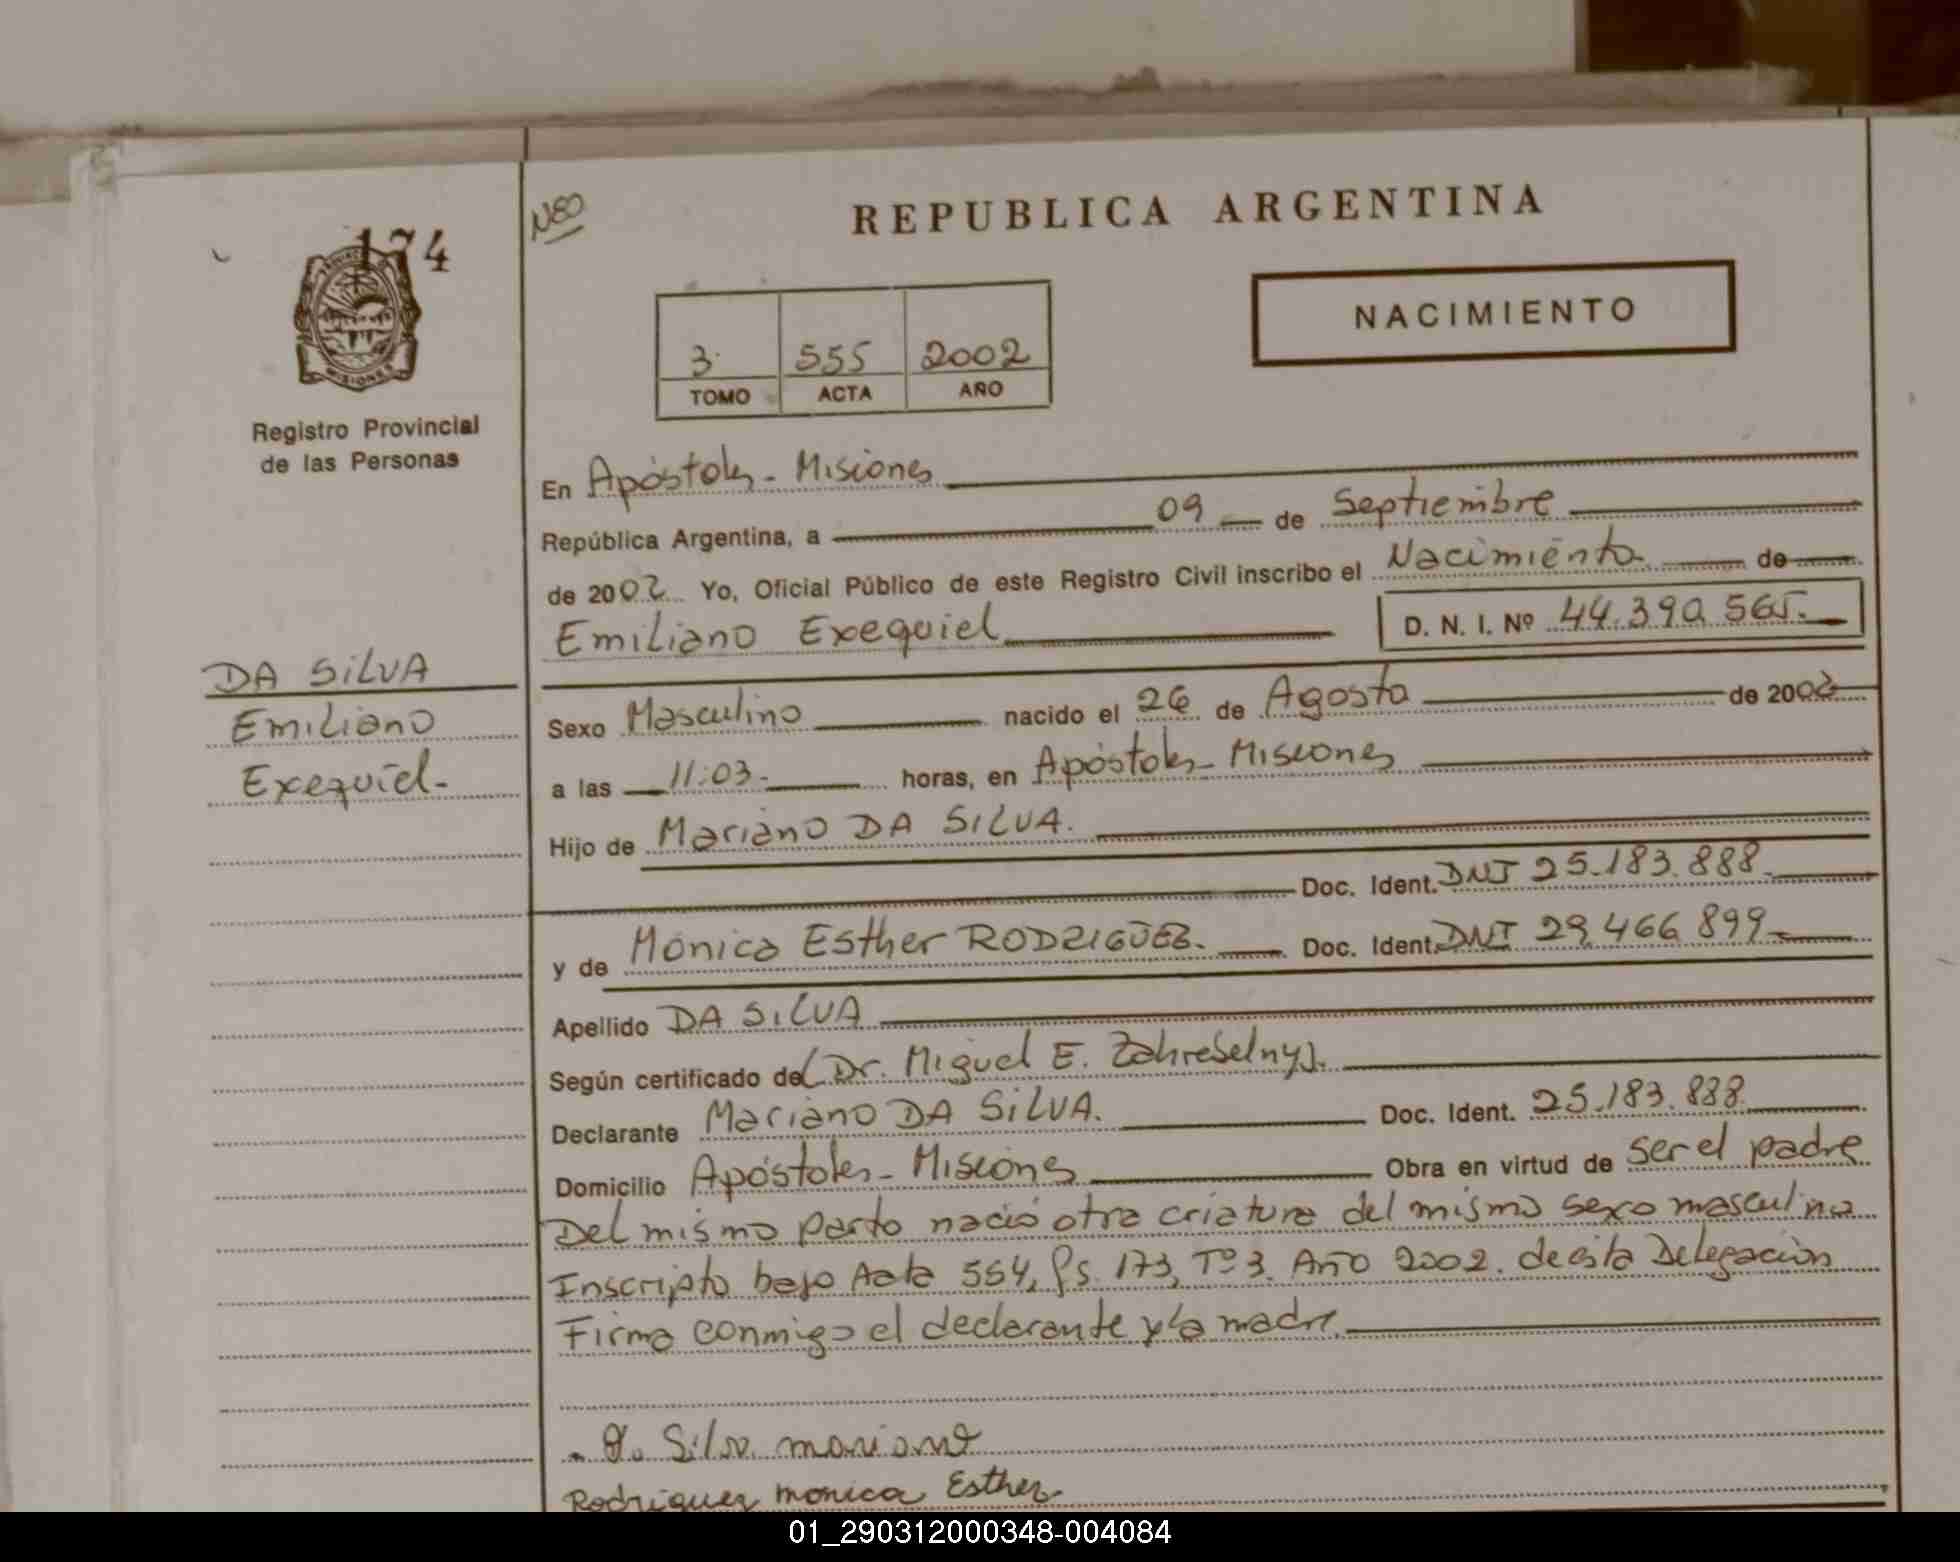 174
N80
REPUBLICA ARGENTINA
NACIMIENTO
3 555 2002
TOMO ACTA AÑO
PROVINCIA
MISIONES
Registro Provincial
de las Personas
En Apóstoles - Misiones
República Argentina, a 09 de Septiembre
de 2002 Yo, Oficial Público de este Registro Civil inscribo el Nacimiento de
Emiliano Exequiel D. N. I. Nº 44.390.565.
DA SILVA
Emiliano
Exequiel -
Sexo Masculino nacido el 26 de Agosto de 2002
a las 11:03 - horas, en Apóstoles - Misiones
Hijo de Mariano DA SILVA.
Doc. Ident. DNI 25.183.888
y de Mónica Esther RODRIGUEZ. Doc. Ident. DNI 29.466.899
Apellido DA SILVA
Según certificado de (Dr. Miguel E. Zahreselny).
Declarante Mariano DA SILVA. Doc. Ident. 25.183.888
Domicilio Apóstoles - Misiones Obra en virtud de ser el padre
Del mismo parto nació otra criatura del mismo sexo masculino
Inscripto bajo Acta 554, fs. 173, Tº 3. Año 2002. de esta Delegación
Firma conmigo el declarante y la madre.
Silva mariano
Rodriguez monica Esther
01_290312000348-004084